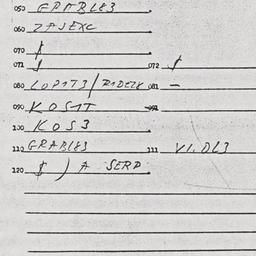 050 GRABLE3
060 ZAJEXC
070 $
071 $ 072 $
080 LOP1T3/RIDEZE 081 -
090 KOS1T 091
100 KOS3
110 GRABLE3 111 VI.DL3
120 $ ) A SERP